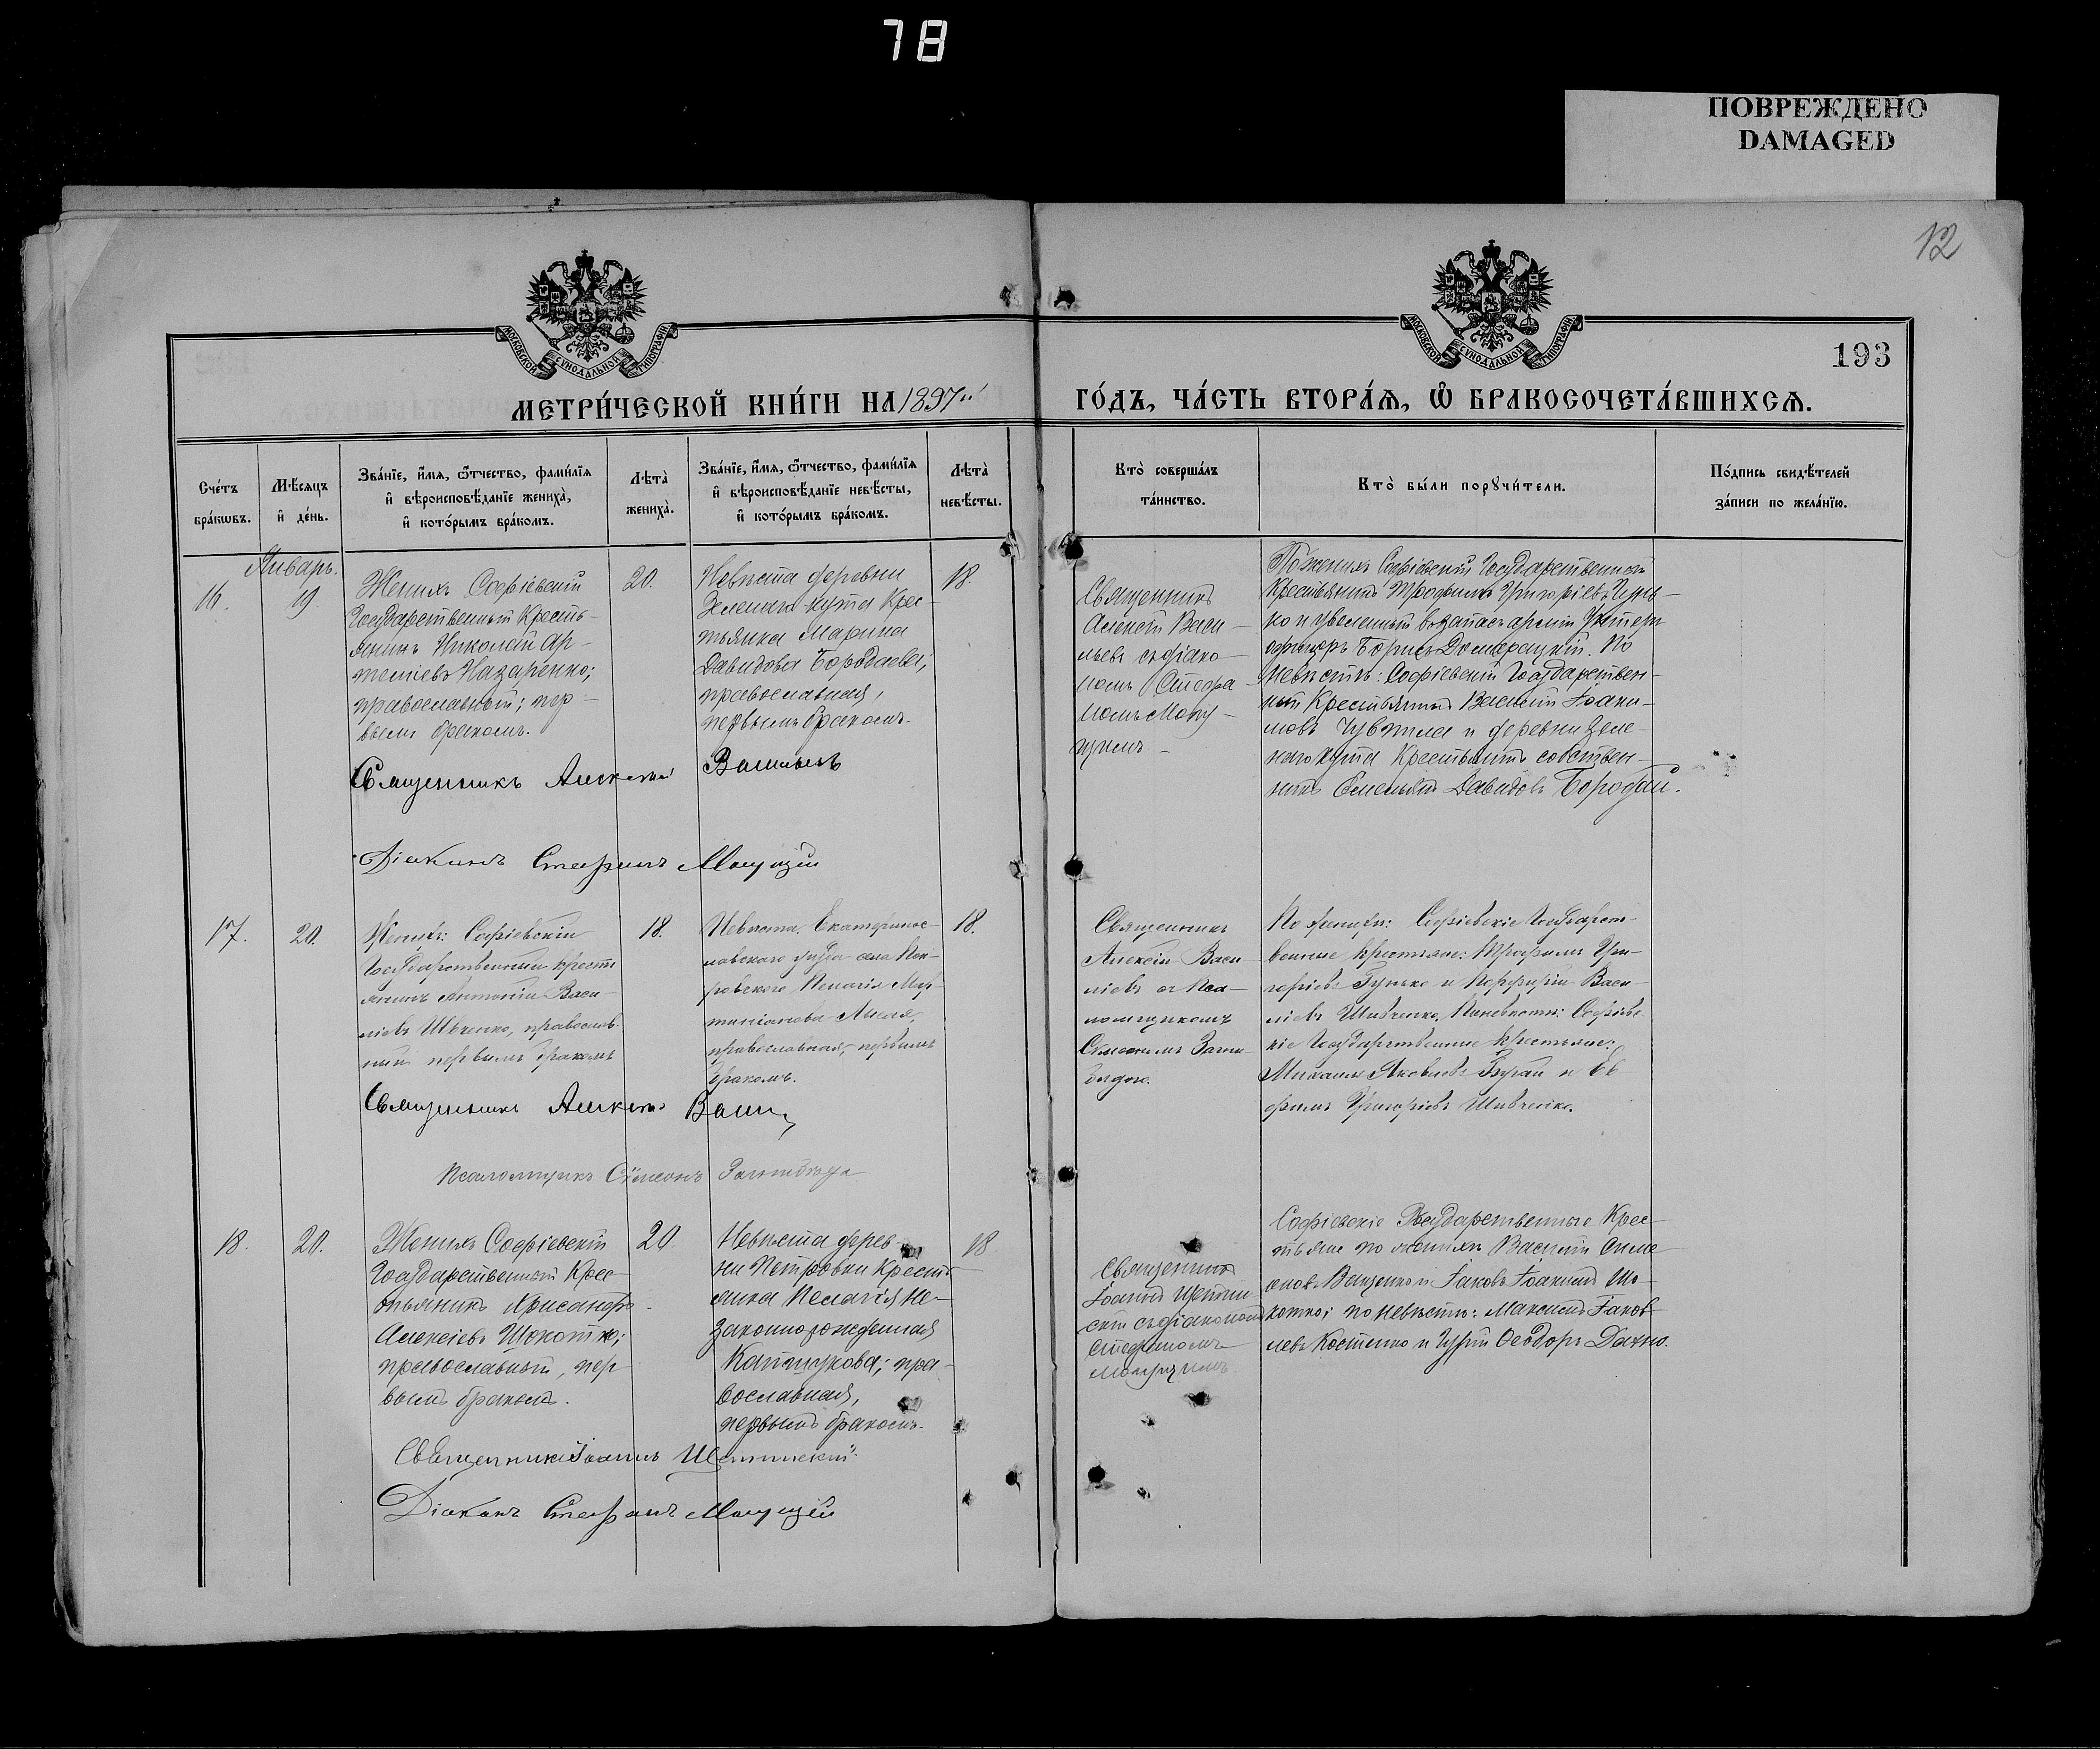 78
ПОВРЕЖДЕНО
DAMAGED
12
193
МОСКОВСКОЙ СУНОДАЛЬНОЙ ТИПОГРАФІИ
МОСКОВСКОЙ СУНОДАЛЬНОЙ ТИПОГРАФІИ
МЕТРИ́ЧЕСКОЙ КНИ́ГИ НА 1897й
ГО́ДЪ, ЧА́СТЬ ВТОРА́Ѧ, Ѽ БРАКОСОЧЕТА́ВШИХСѦ.
Сче́тъ
бра́кѡвъ.
Мѣ́сяцъ
и҆ де́нь.
Зва́нїе, и҆́мѧ, ѻ҆́тчество, фамі́лїѧ
и҆ вѣроисповѣ́данїе жениха̀,
и҆ кото́рымъ бра́комъ.
Лѣ̑та̀
жениха̀.
Зва́нїе, и҆́мѧ, ѻ҆́тчество, фамі́лїѧ
и҆ вѣроисповѣ́данїе невѣ́сты,
и҆ кото́рымъ бра́комъ.
Лѣ̑та̀
невѣ́сты.
Кто̀ соверша́лъ
та́инство.
Кто̀ бы́ли порꙋчи́тели.
По́дпись свидѣ́телей
за́писи по жела́нїю.
Январь.
16.
19.
Женихъ Софіевскій
Государственный кресть-
янинъ Николай Ар-
теміевъ Назаренко;
православный; пер-
вымъ бракомъ.
20.
Невѣста деревни
Зеленаго кута крес-
тьянка Марина
Давидова Бородаева;
православная,
первымъ бракомъ.
18.
Священникъ
Алексій Васи-
льевъ съ діако-
номъ Стефа-
номъ
По женихѣ Софіевскій Государственный
крестьянинъ Трофимъ Григоріевъ
ко и уволенный въ запасъ арміи Унтеръ
офицеръ Борисъ По
невѣстѣ: Софіевскій Государствен-
ный крестьянинъ Василій Іоаки-
мовъ и деревни Зеле-
наго кута крестьянинъ собствен-
никъ Емельянъ Давидовъ Бородай.
Священникъ Алексій Васильевъ
Діаконъ Стефанъ
17.
20.
Женихъ: Софіевскій
Государственный кресть
янинъ Антоній Васи-
ліевъ Шевченко, православ-
ный первымъ бракомъ
18.
Невѣста: Екатеринос-
лавскаго уѣзда села Пок-
ровскаго Пелагія Мар-
тиніанова
православная, первымъ
бракомъ.
18.
Священникъ
Алексій Васи-
ліевъ съ Пса-
ломщикомъ
Симеономъ
По женихѣ: Софіевскіе Государст-
венные крестьяне: Трофимъ Гри-
горіевъ Гунько и Порфирій Васи-
ліевъ Шевченко. По невѣстѣ: Софіевс
кіе Государственные крестьяне:
Михаилъ Яковлевъ и Ев
фимъ Григоріевъ Шевченко.
Священникъ Алексій
Псаломщикъ Симеонъ
18.
20.
Женихъ Софіевскій
Государственный крес-
тьянинъ
Алексіевъ Шокотко;
православный, пер
вымъ бракомъ.
20
Невѣста дерев-
ни Петровки кресть-
янка Пелагія не-
законнорожденная
пра-
вославная,
первымъ бракомъ.
18
Священникъ
Іоаннъ
съ діакономъ
Стефаномъ
Софіевскіе Государственные крес-
тьяне по женихѣ Василій Симе
оновъ Ващенко и Іаковъ Іоакимъ Шо-
котко; по невѣстѣ: Максимъ Іаков-
левъ Костенко и Гурій Ѳеодоръ Дахно.
Священникъ Іоаннъ
Діаконъ Стефанъ